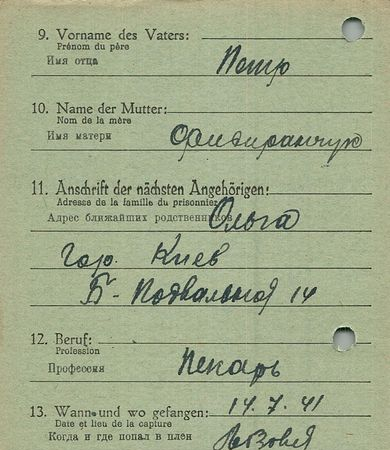 9. Vorname des Vaters:
Prénom du père
Имя отца Петр
10. Name der Mutter:
Nom de la mère
Имя матери
11. Anschrift der nächsten Angehörigen:
Adresse de la famille du prisonnier
Адрес ближайших родственников Ольга
гор. Киев
Б-Подвальная 14
12. Beruf:
Profession
Профессия Пекарь
13. Wann und wo gefangen: 14.7.41
Date et lieu de la capture
Когда и где попал в плен